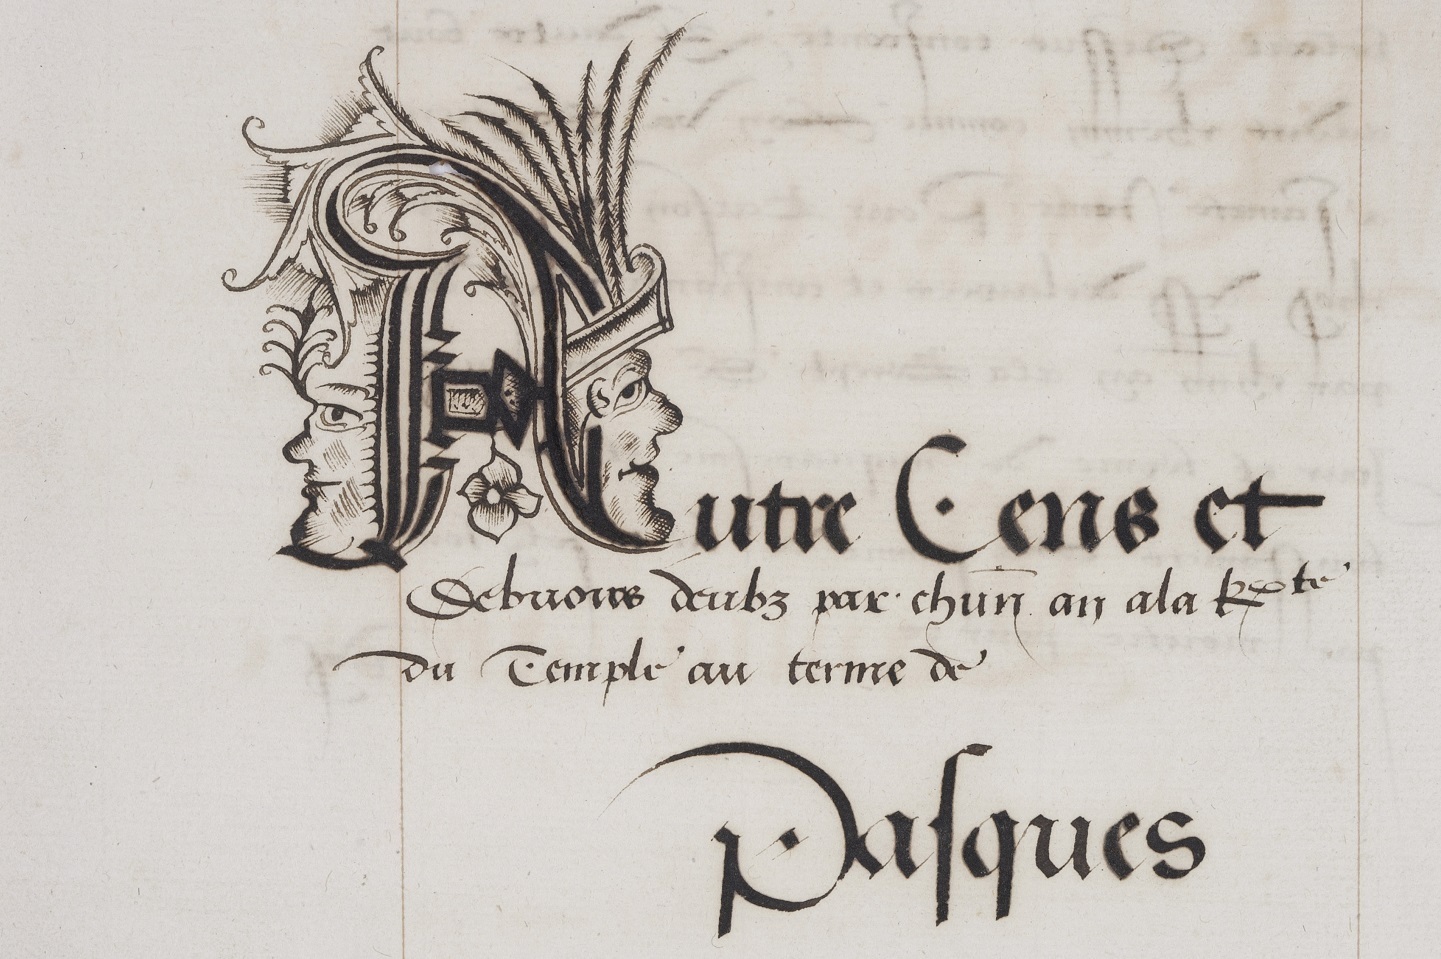 Autre Cens et
Debuoirs deubz par chūn an a la Rcpte
du Temple au terme de
Pasques